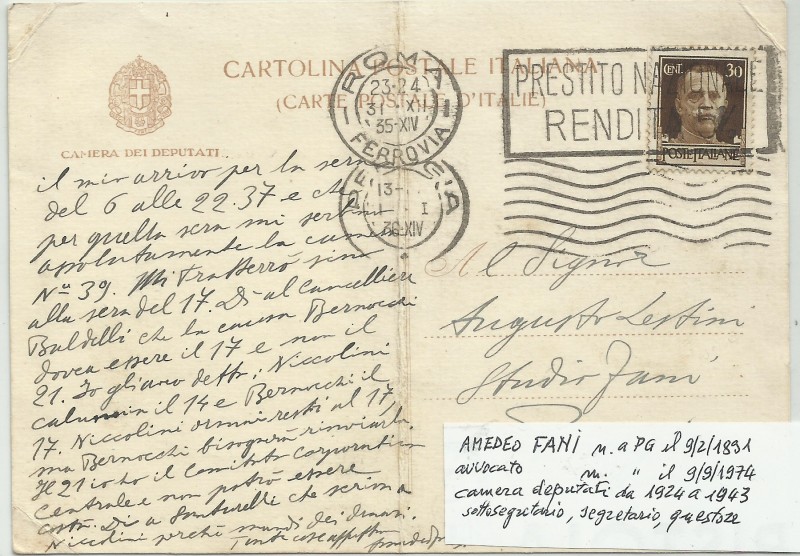 CARTOLINA POSTALE ITALIANA
(CARTE POSTALE D'ITALIE)
CAMERA DEI DEPUTATI
ROMA
23-24
31 XII
35-XIV
FERROVIA
13-
1 I
36-XIV
PRESTITO NAZIONALE
RENDITA
CENT. 30
POSTE ITALIANE
il mio arrivo per la sera
del 6 alle 22.37 e che
per quella sera mi serbino
assolutamente la camera
Nº 39. Mi tratterrò sino
alla sera del 17. Dì al Cancelliere
Baldelli che la causa Bernocchi
dovea essere il 17 e non il
21. Io gliavo detto: Niccolini
il 14 e Bernocchi il
17. Niccolini ormai resti al 17,
ma Bernocchi bisogna rinviarla.
Il 21 io ho il Comitato Corporativo
Centrale e non potrò essere
costì. Dì a che scriva a
Niccolini perché mandi dei denari.
Tante cose
Al Signor
Augusto Lestini
Studio Fani
AMEDEO FANI n. a PG il 9/2/1891
avvocato m. " il 9/9/1974
camera deputati da 1924 a 1943
sottosegretario, segretario, questore